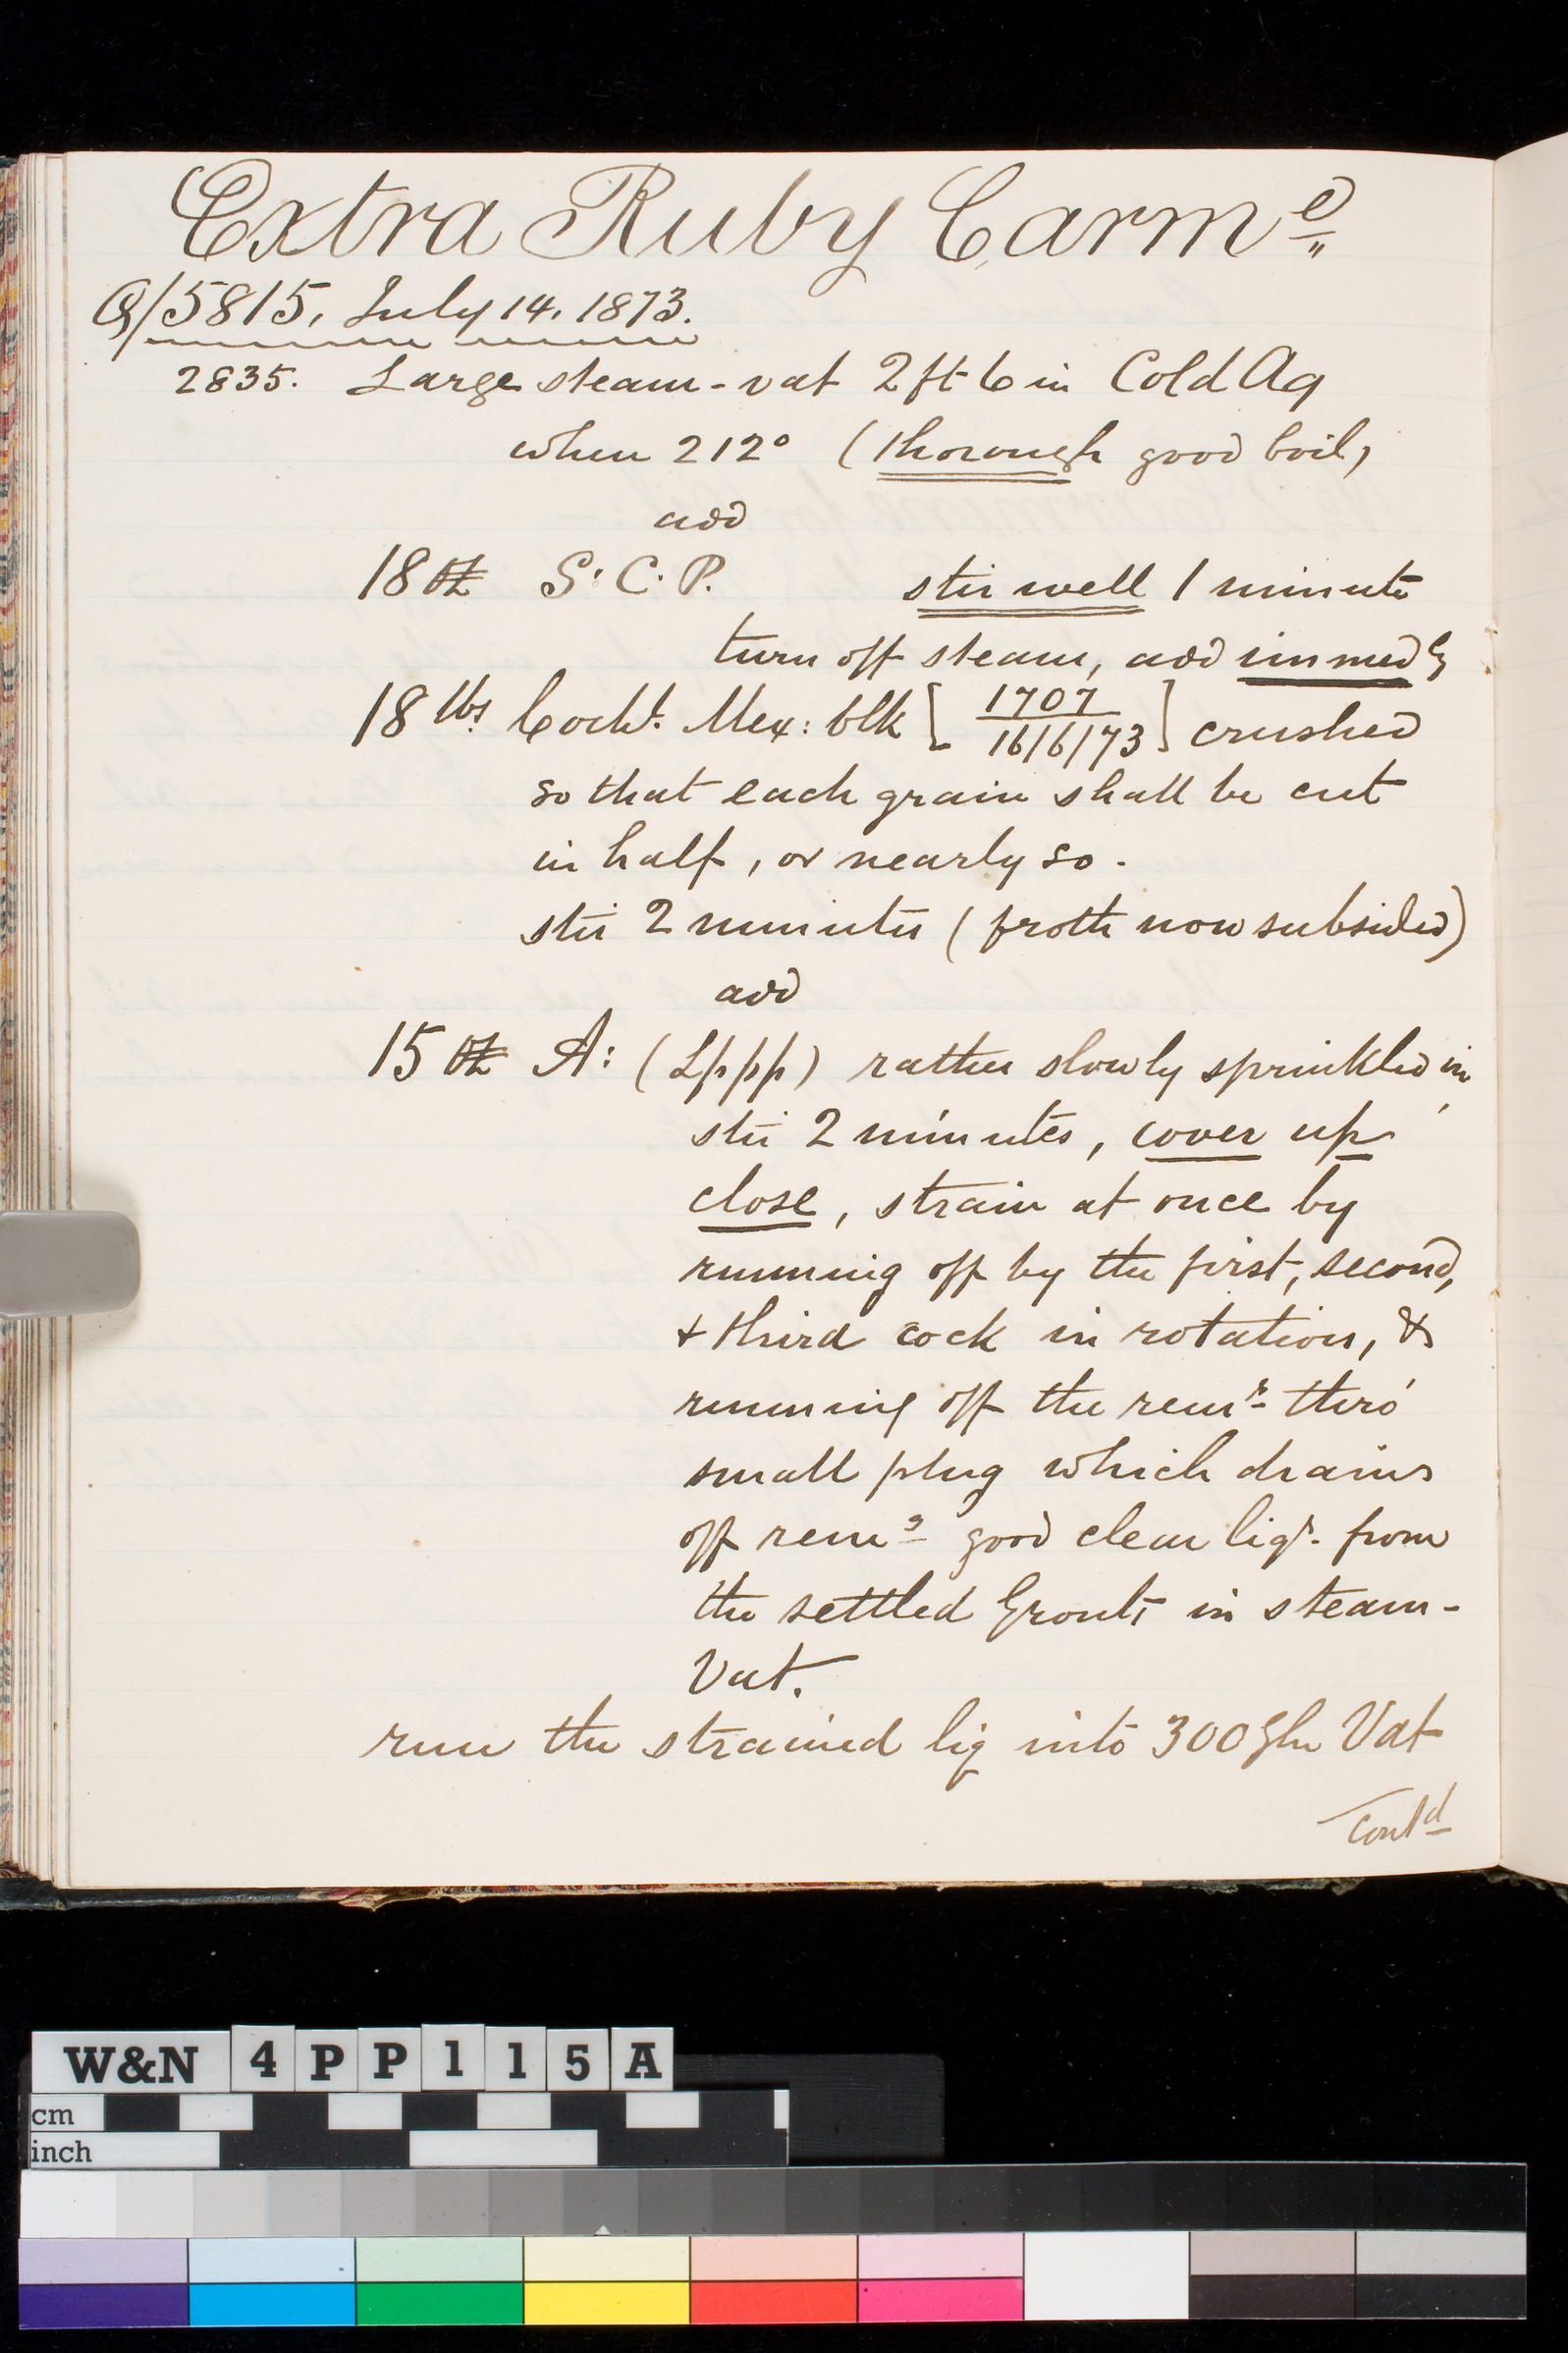 Extra Ruby Carmᵉ
Q/5815, July 14. 1873.
2835. Large steam-vat 2 ft 6 in Cold Aq
when 212° (thorough good boil,
add
18 oz S. C. P. stir well 1 minute
turn off steam, add immedy
18 lbs Cochl. Mex: blk [1707
16/6/73] crushed
so that each grain shall be cut
in half, or nearly so.
stir 2 minutes (froth now subsided)
add
15 oz A: (Lppp) rather slowly sprinkled in,
stir 2 minutes, cover up
close, strain at once by
running off by the first, second,
+ third cock in rotation, &
running off the remr thro'
small plug which drains
off remg good clear liqr. from
the settled Grouts in steam-
Vat.
run the strained liq into 300 Gln Vat
Contd
W&N 4PP115A
cm
inch